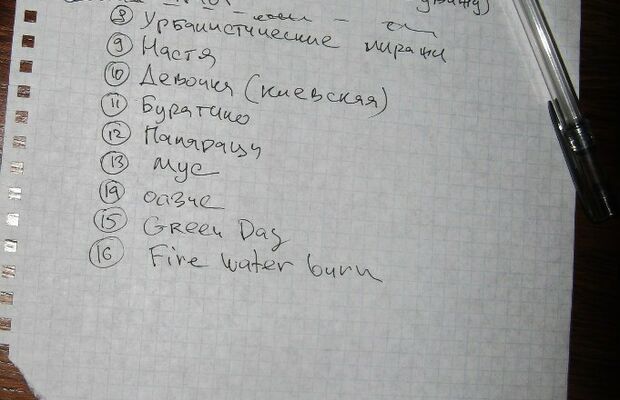 ⑧ Урбанистические миражи
⑨ Настя
⑩ Девочка (киевская)
⑪ Буратино
⑫ Папарацц
⑬ Мус
⑭ оазис
⑮ Green Day
⑯ Fire water burn